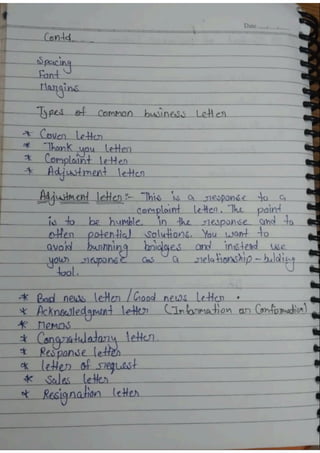 Date
Contd.
Spacing
Font
Margins
Types of common business Letter
* Cover letter
* Thank you letter
* Complaint letter
* Adjustment letter
Adjustment letter:- This is a response to a
complaint letter. The point
is to be humble in the response and to
offer potential solutions. You want to
avoid burning bridges and instead use
your response as a relationship-building
tool.
* Bad news letter / Good news letter.
* Acknowledgment letter (Information or Confirmation)
* Memos
* Congratulatory letter.
* Response letter
* letter of request
* Sales letter
* Resignation letter